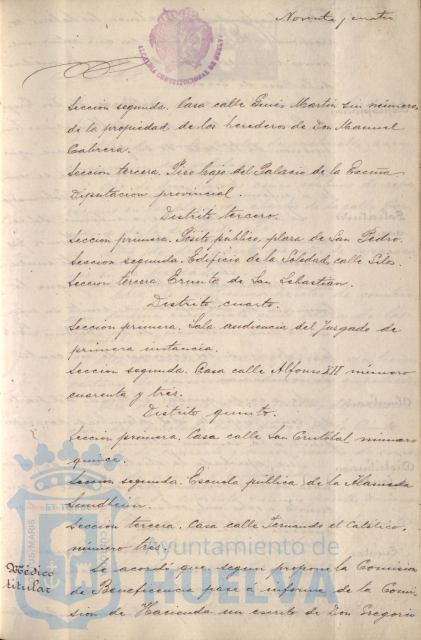 Noventa y cuatro
ALCALDIA CONSTITUCIONAL DE HUELVA
Sección segunda. Casa calle Ginés Martín sin número
de la propiedad de los herederos de Don Manuel
Cabrera.
Sección tercera. Piso bajo del Palacio de la Excma
Diputacion provincial.
Distrito tercero.
Sección primera. Pósito público, plaza de San Pedro.
Sección segunda. Edificio de la Soledad, calle Silos.
Seccion tercera Ermita de San Sebastian.
Distrito cuarto.
Sección primera. Sala audiencia del Juzgado de
primera instancia.
Sección segunda. Casa calle Alfonso XII número
cuarenta y tres.
Distrito quinto.
Sección primera. Casa calle San Cristóbal número
quince.
Sección segunda. Escuela pública de la Alameda
Sundheim.
Seccion tercera. Casa calle Fernando el Católico,
número tres.
Médico titular
Se acordó que segun propone la Comision
de Beneficencia pase á informe de la Comi-
sion de Hacienda un escrito de Don Gregorio
Ayuntamiento de
HUELVA